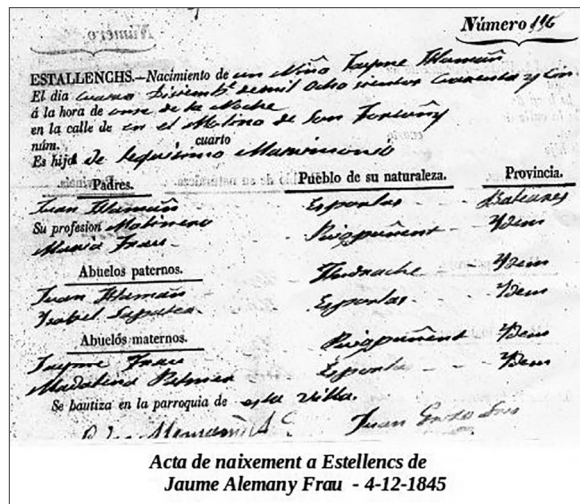 Número 196
ESTALLENCHS.—Nacimiento de un Niño Jayme Alamañ
El dia cuatro Diciembe. de mil Ocho sientos cuarenta y Cin
á la hora de once de la Noche
en la calle de en el Molino de Son Fortuñy
núm. cuarto
Es hijo de legitimo Matrimonio
Padres. Pueblo de su naturaleza. Provincia.
Juan Alamañ Esporlas Baleares
Su profesion Molinero
Maria Frau Puigpuñent Ydem
Abuelos paternos.
Juan Alamañ Andrache Ydem
Ysabel Esporlas Ydem
Abuelos maternos.
Jayme Frau Puigpuñent Ydem
Madalena Palmer Esporlas Ydem
Se bautiza en la parroquia de esta villa.
Juan
Acta de naixement a Estellencs de
Jaume Alemany Frau - 4-12-1845